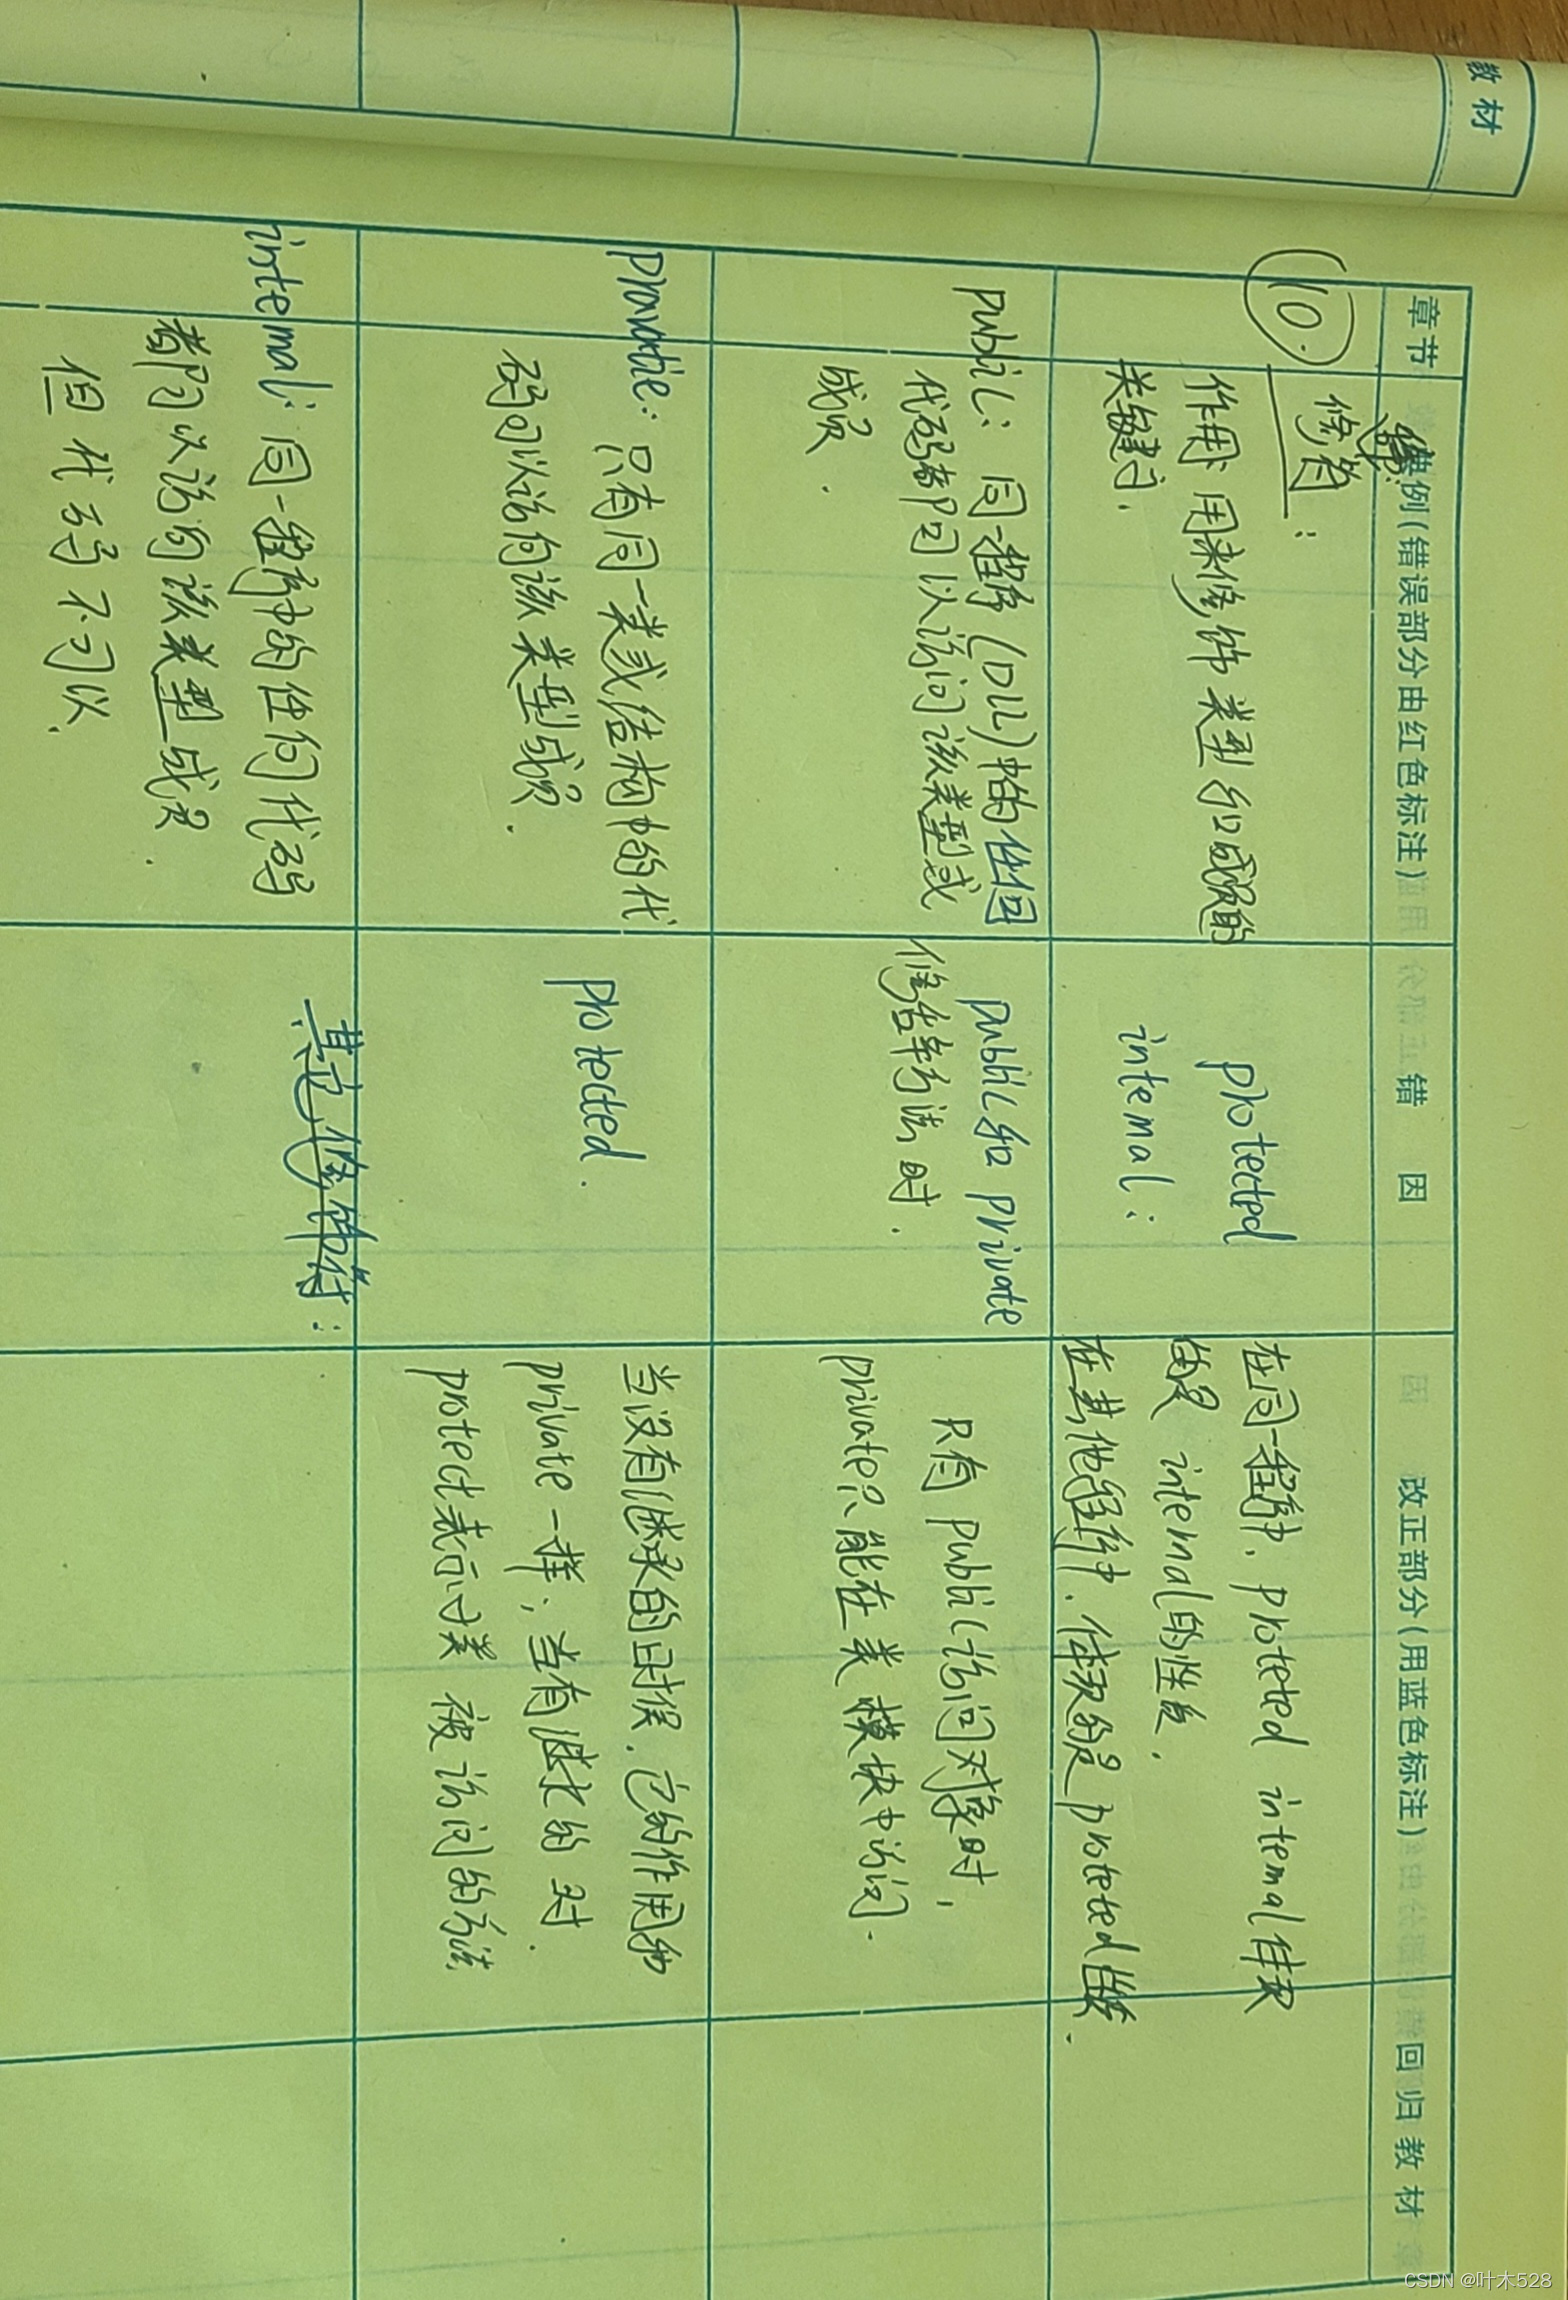 教材
章节
典例(错误部分由红色标注)
错因
改正部分(用蓝色标注)
回归教材
10.
修饰符:
作用: 用来修饰类型和成员的
关键字.
public: 同一程序(DLL)中的任何
代码都可以访问该类型或
成员.
pravatie: 只有同一类或结构中的代
码可以访问该类型成员.
internal: 同一程序中的任何代码
都可以访问该类型成员.
但 代码不可以.
protected
internal:
public和 private
修饰方法时.
protected.
其它修饰符:
在同一程序中, proteted internal体现
的是 internal的性质,
在其他程序中, 体现的是 proteted
只有 public访问对象时,
private只能在类模块中访问.
当没有继承的时候, 它的作用和
private 一样; 当有继承的时
protect表示子类 被访问的方法.
CSDN @叶木528